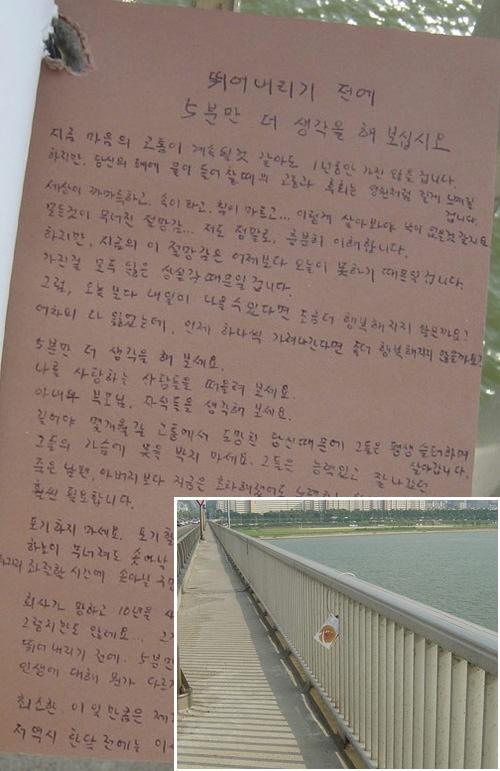 뛰어내리기 전에
5분만 더 생각을 해 보십시요
지금 마음의 고통이 계속될것 같아도 1년동안 가진 않을 겁니다.
하지만, 당신의 폐에 물이 들어찰때의 고통과 후회는 영원처럼 길게 느껴질
겁니다.
세상이 까마득하고, 속이 타고, 힘이 마르고... 이렇게 살아봐야 낙이 없을것 같지요
모든것이 무너진 절망감... 저도 정말로, 충분히 이해합니다.
하지만, 지금의 이 절망감은 어제보다 오늘이 못하기 때문일겁니다.
가진걸 모두 잃은 상실감때문일 겁니다.
그럼, 오늘보다 내일이 나을수있다면 조금더 행복해지지 않을까요?
어차피 다 잃었는데, 인제 하나씩 가져나간다면 좀더 행복해지지 않을까요?
5분만 더 생각을 해 보세요.
나를 사랑하는 사람들을 떠올려 보세요.
아내와 부모님, 자식들을 생각해 보세요.
길어야 몇개월짜리 고통에서 도망친 당신때문에 그들은 평생 슬퍼하며
살아갑니다.
그들의 가슴에 못을 박지 마세요. 그들은 능력있고 잘나갔던
죽은 남편, 아버지보다 지금은 초라해졌어도
훨씬 필요합니다.
포기하지 마세요. 포기할
하늘이 무너져도 솟아날
좌절할 시간에 솟아날 구멍
회사가 망하고 10년을
그렇지만도 않데요...
뛰어내리기 전에. 5분만
인생에 대해 뭔가 다르
최소한, 이 잊만큼은
저 역시 한달 전에는 이